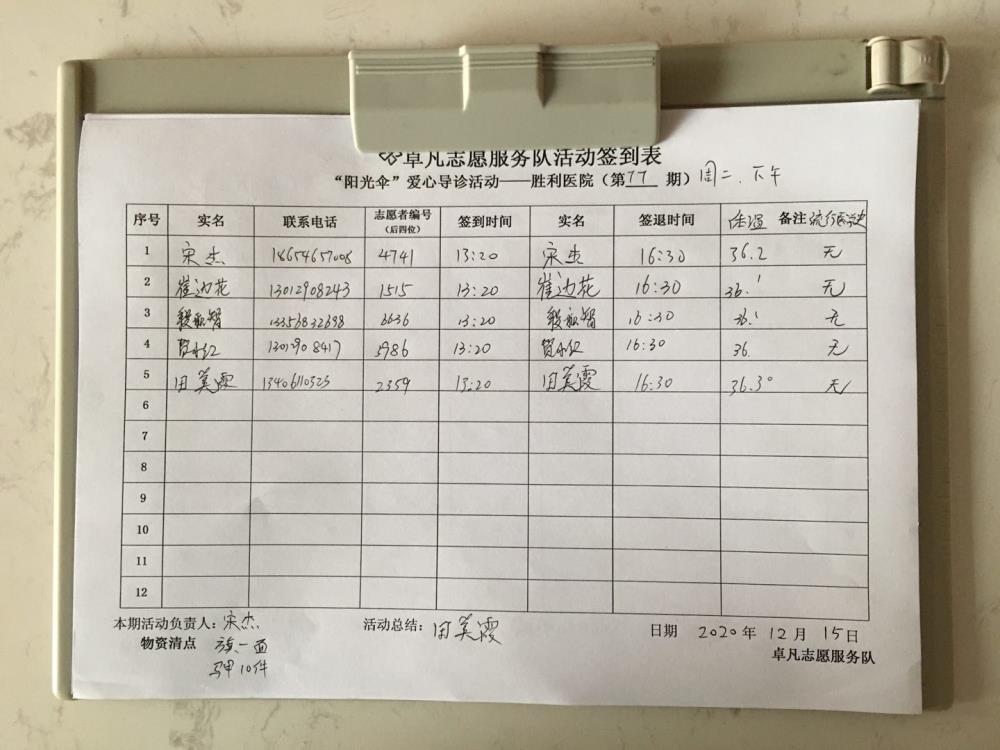 卓凡志愿服务队活动签到表
“阳光伞”爱心导诊活动——胜利医院（第77期）周二.下午
序号 实名 联系电话 志愿者编号（后四位） 签到时间 实名 签退时间 体温 备注 流行病学史
1 宋杰 18654657008 4741 13:20 宋杰 16:30 36.2 无
2 崔边花 13012908243 1515 13:20 崔边花 16:30 36.1 无
3 13356832698 6636 13:20 16:30 36.1 无
4 贾小红 13012908417 3986 13:20 贾小红 16:30 36. 无
5 田美霞 13406110323 2359 13:20 田美霞 16:30 36.3° 无
6
7
8
9
10
11
12
本期活动负责人：宋杰 活动总结：田美霞 日期 2020年12月15日
物资清点 旗一面 卓凡志愿服务队
马甲10件